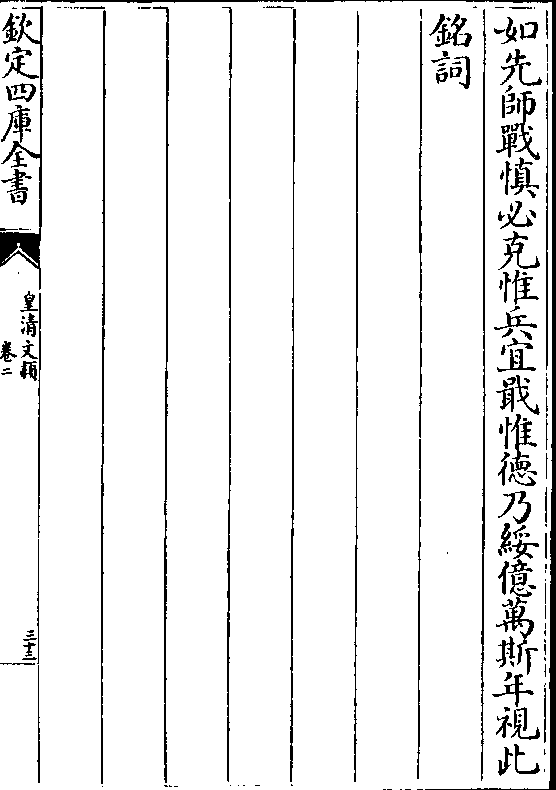 如先師戰慎必克惟兵宜戢惟德乃綏億萬斯年視此
銘詞
欽定四庫全書
皇清文穎
卷二
三十三